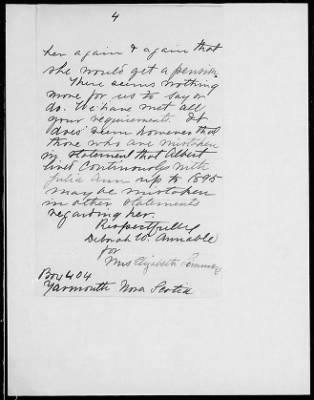 4
her again & again that
she would get a pension.
There seems nothing
more for us to say or
do. We have met all
your requirements. It
does seem however that
those who are mistaken
in statement that Albert
lived continuously with
Julia Ann up to 1895
may be mistaken
in other statements
regarding her.
Respectfully
Deborah W. Annable
for
Mrs Elizabeth
Box 404
Yarmouth Nova Scotia